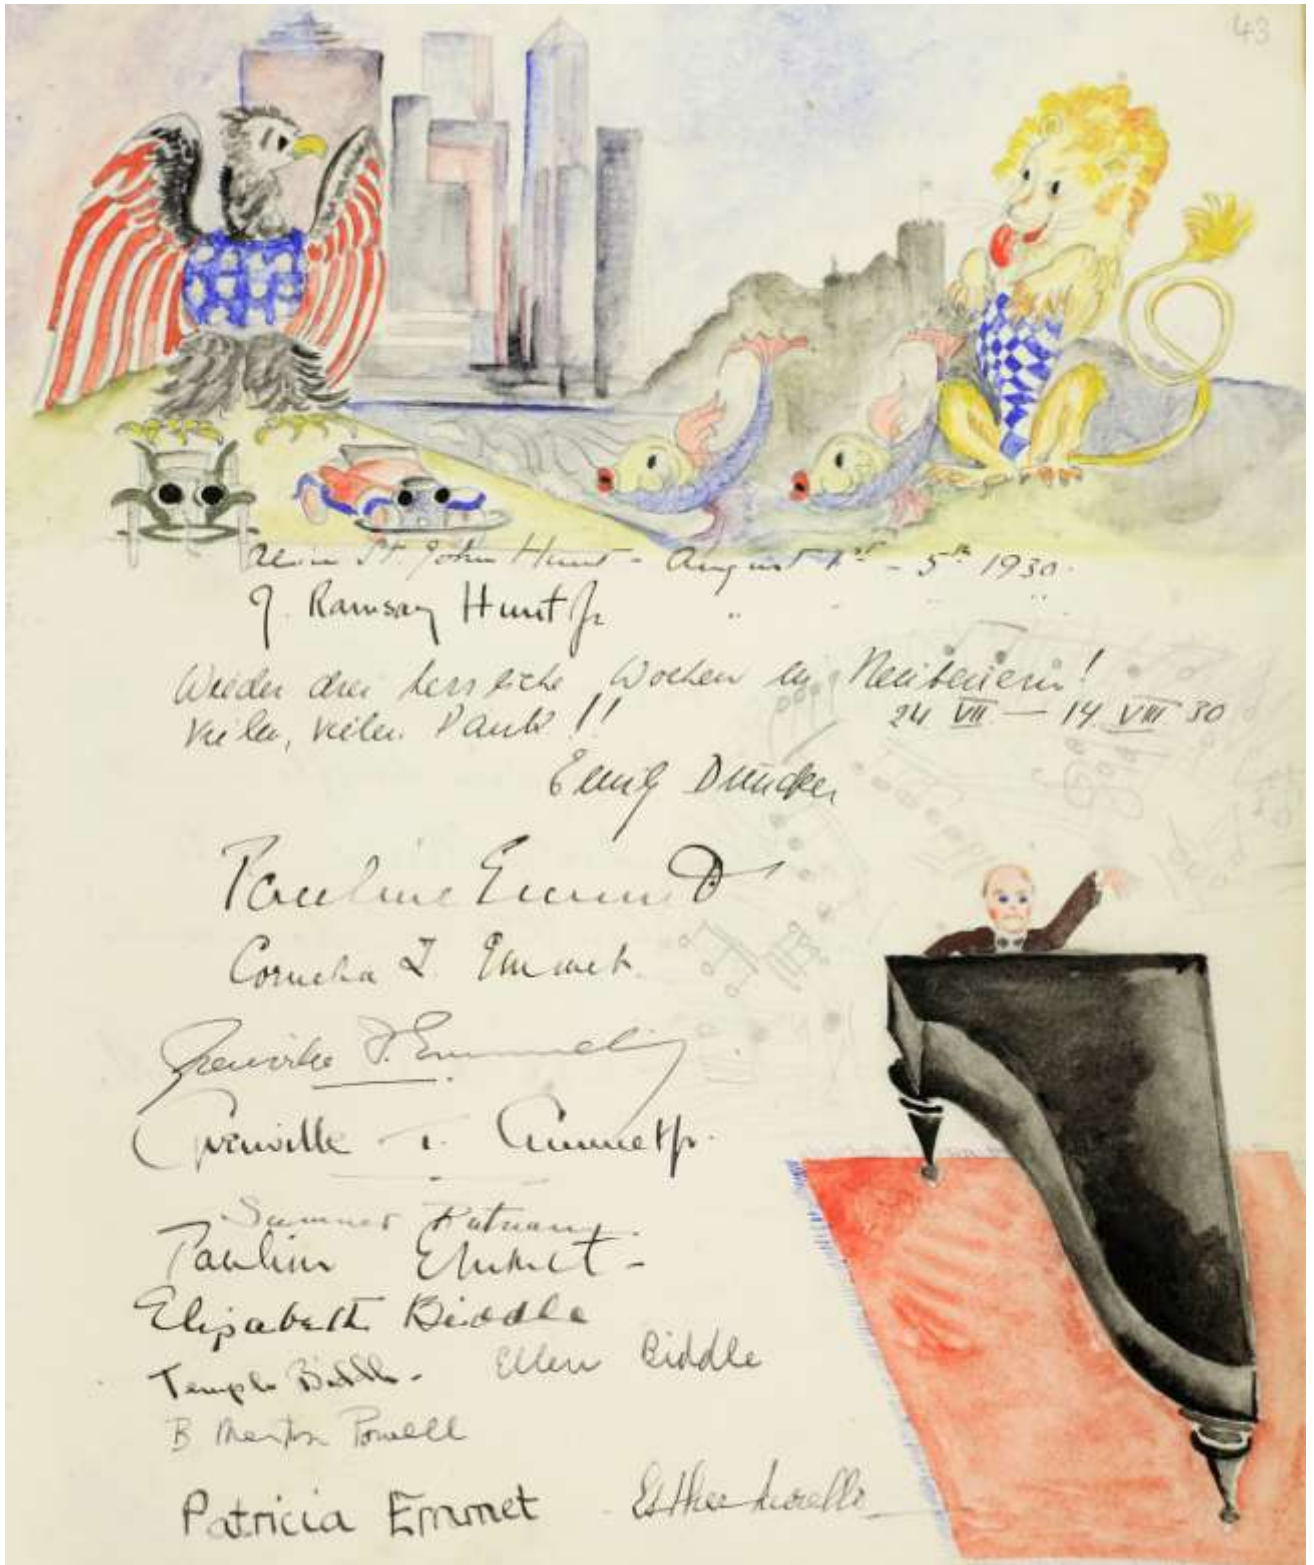 43
St. John Hunt - August 1st - 5th 1930.
J. Ramsay Hunt Jr. " " "
Wieder drei herrliche Wochen in Neubeuern!
Vielen, vielen Dank!! 24 VII — 14. VIII 30
Duncker
Pauline Emmet
Cornelia Z. Emmet.
Grenville T. Emmet
Grenville T. Emmet Jr.
Sumner Putnam
Pauline Emmet -
Elizabeth Biddle
Temple Biddle - Ellen Biddle
B Powell
Patricia Emmet Esther